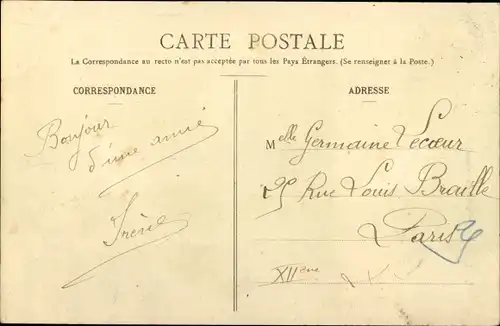 CARTE POSTALE
La Correspondance au recto n'est pas acceptée par tous les Pays Étrangers. (Se renseigner à la Poste.)
CORRESPONDANCE
Bonjour
d'une amie
Irène
ADRESSE
Melle Germaine Lecœur
25 Rue Louis Braille
Paris
XIIème